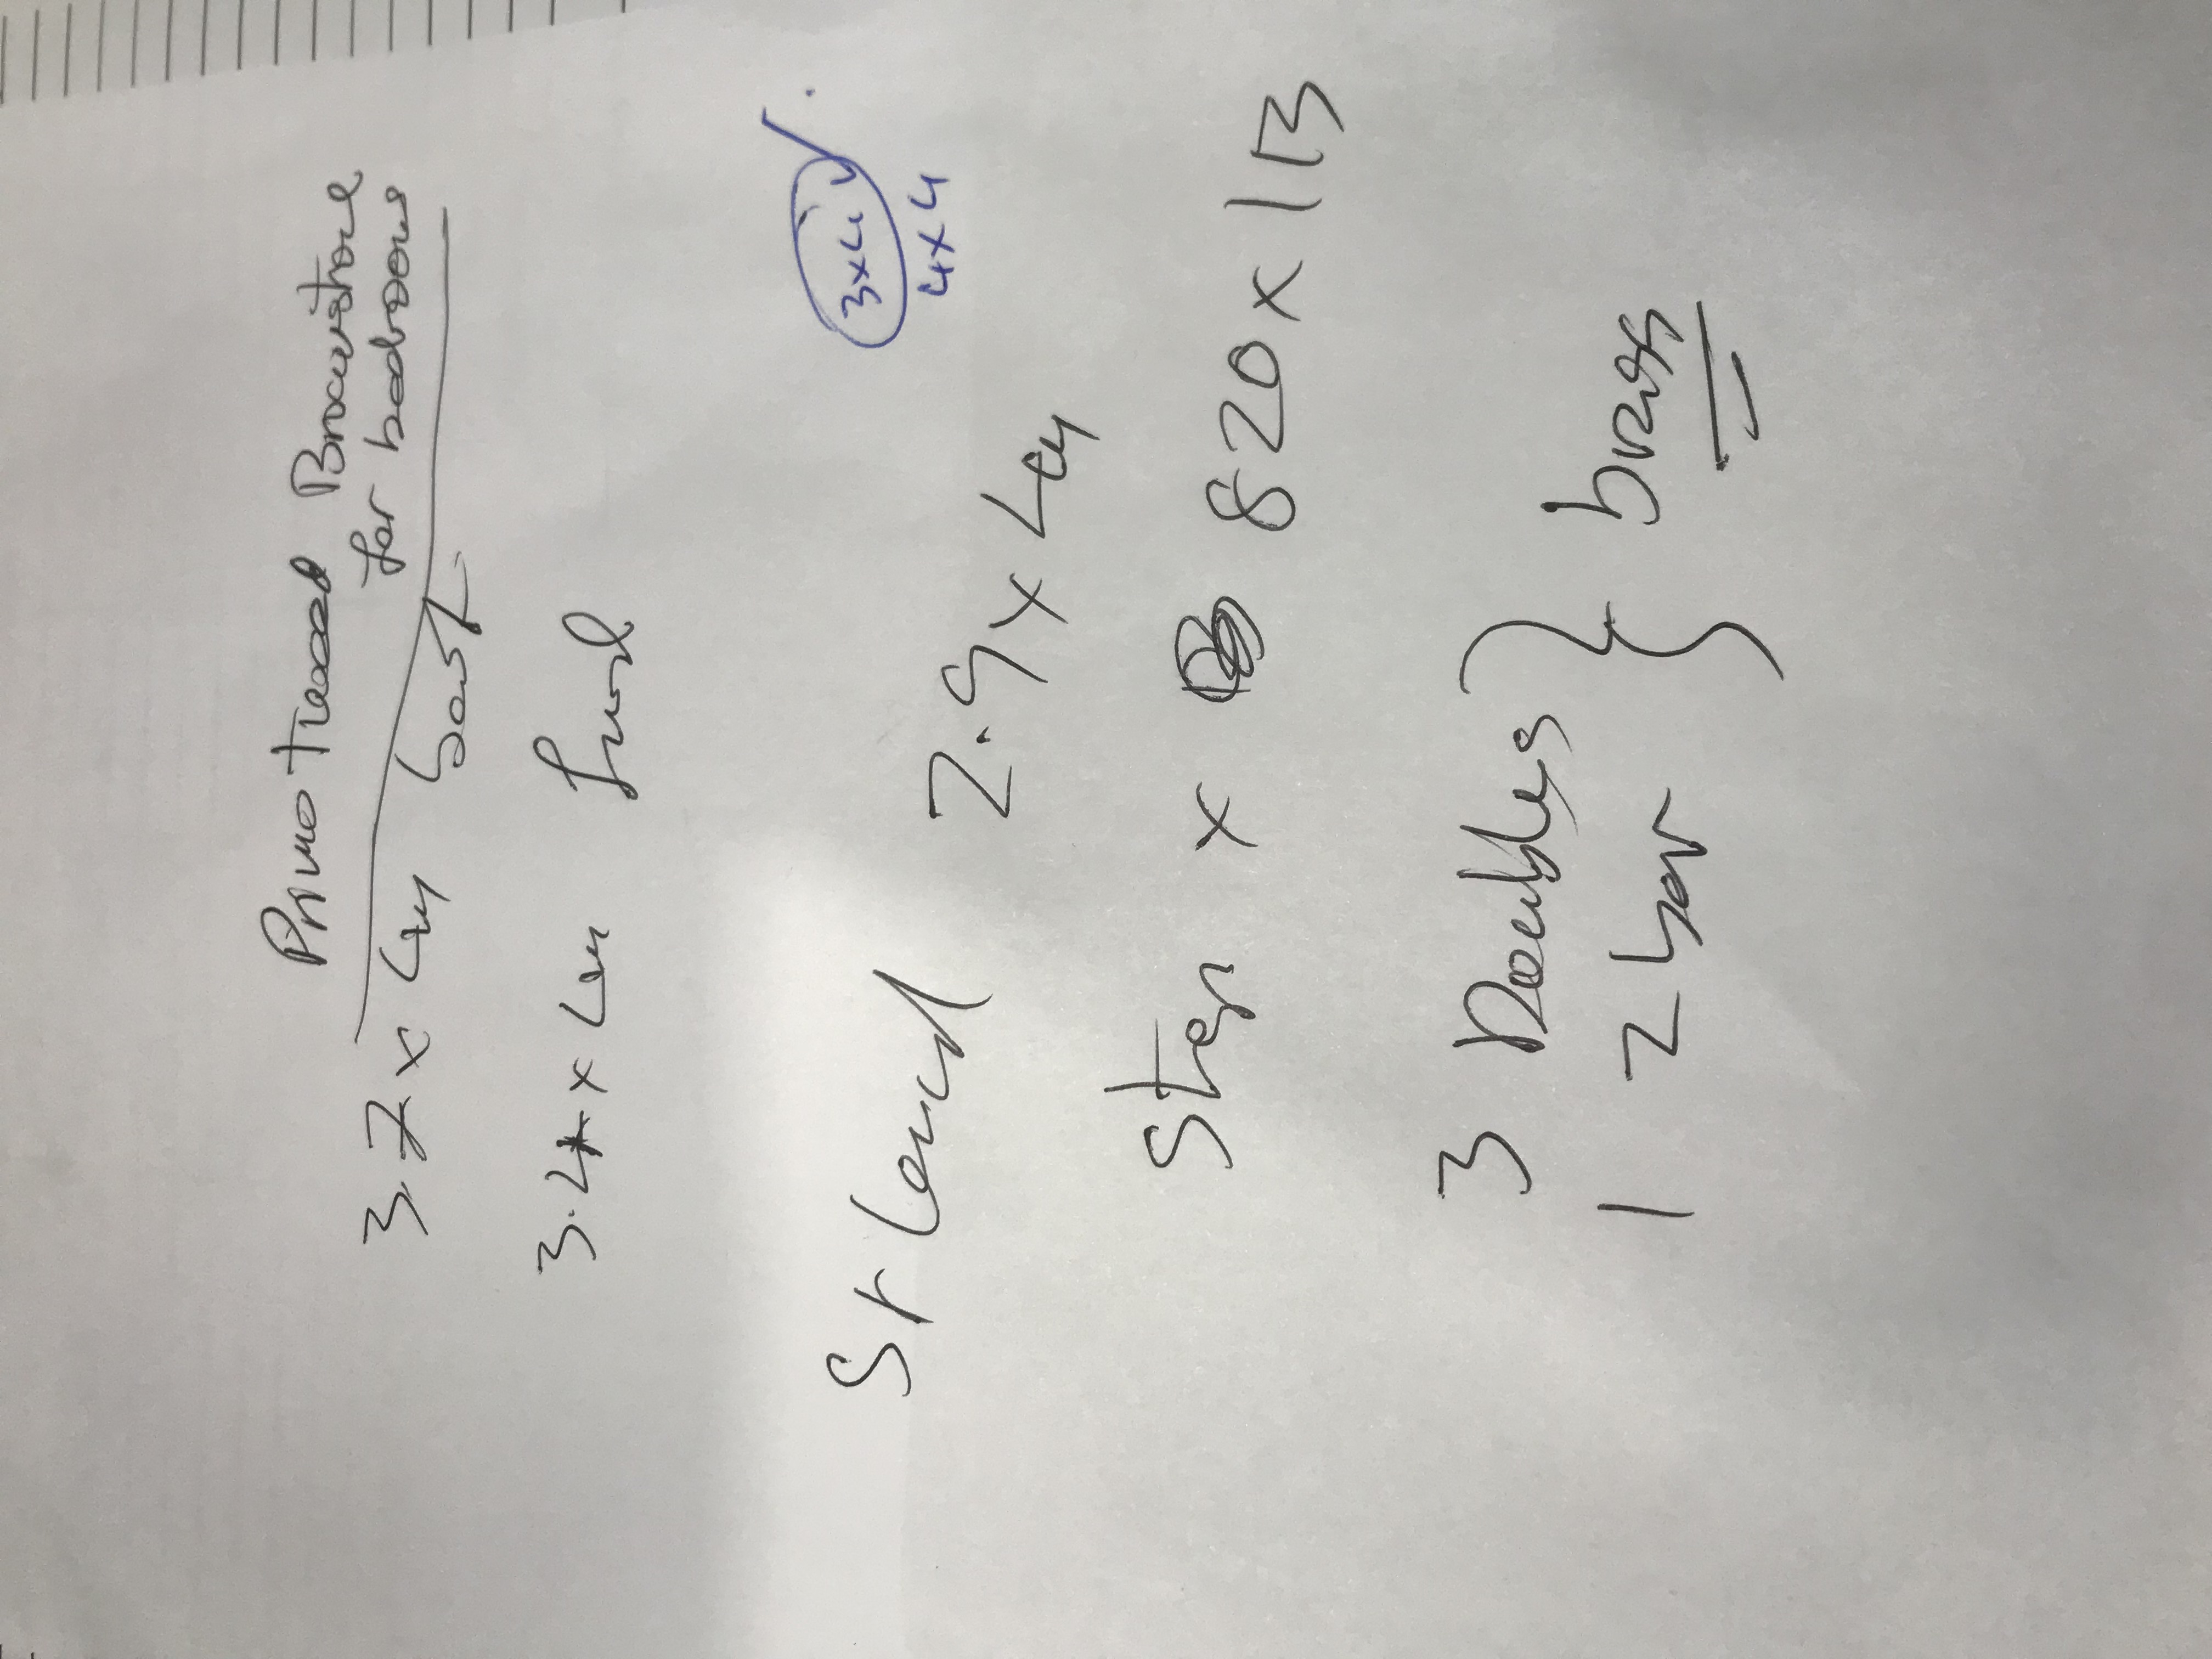 Primo Tweed Brownstone
for bedrooms
3.7 x 4m back
3.4 x 4m front
3x4 ✓.
4x4
St Land 2.9 x 4m
Step x 820 x 13
3 Doubles } brass
1 2 bar